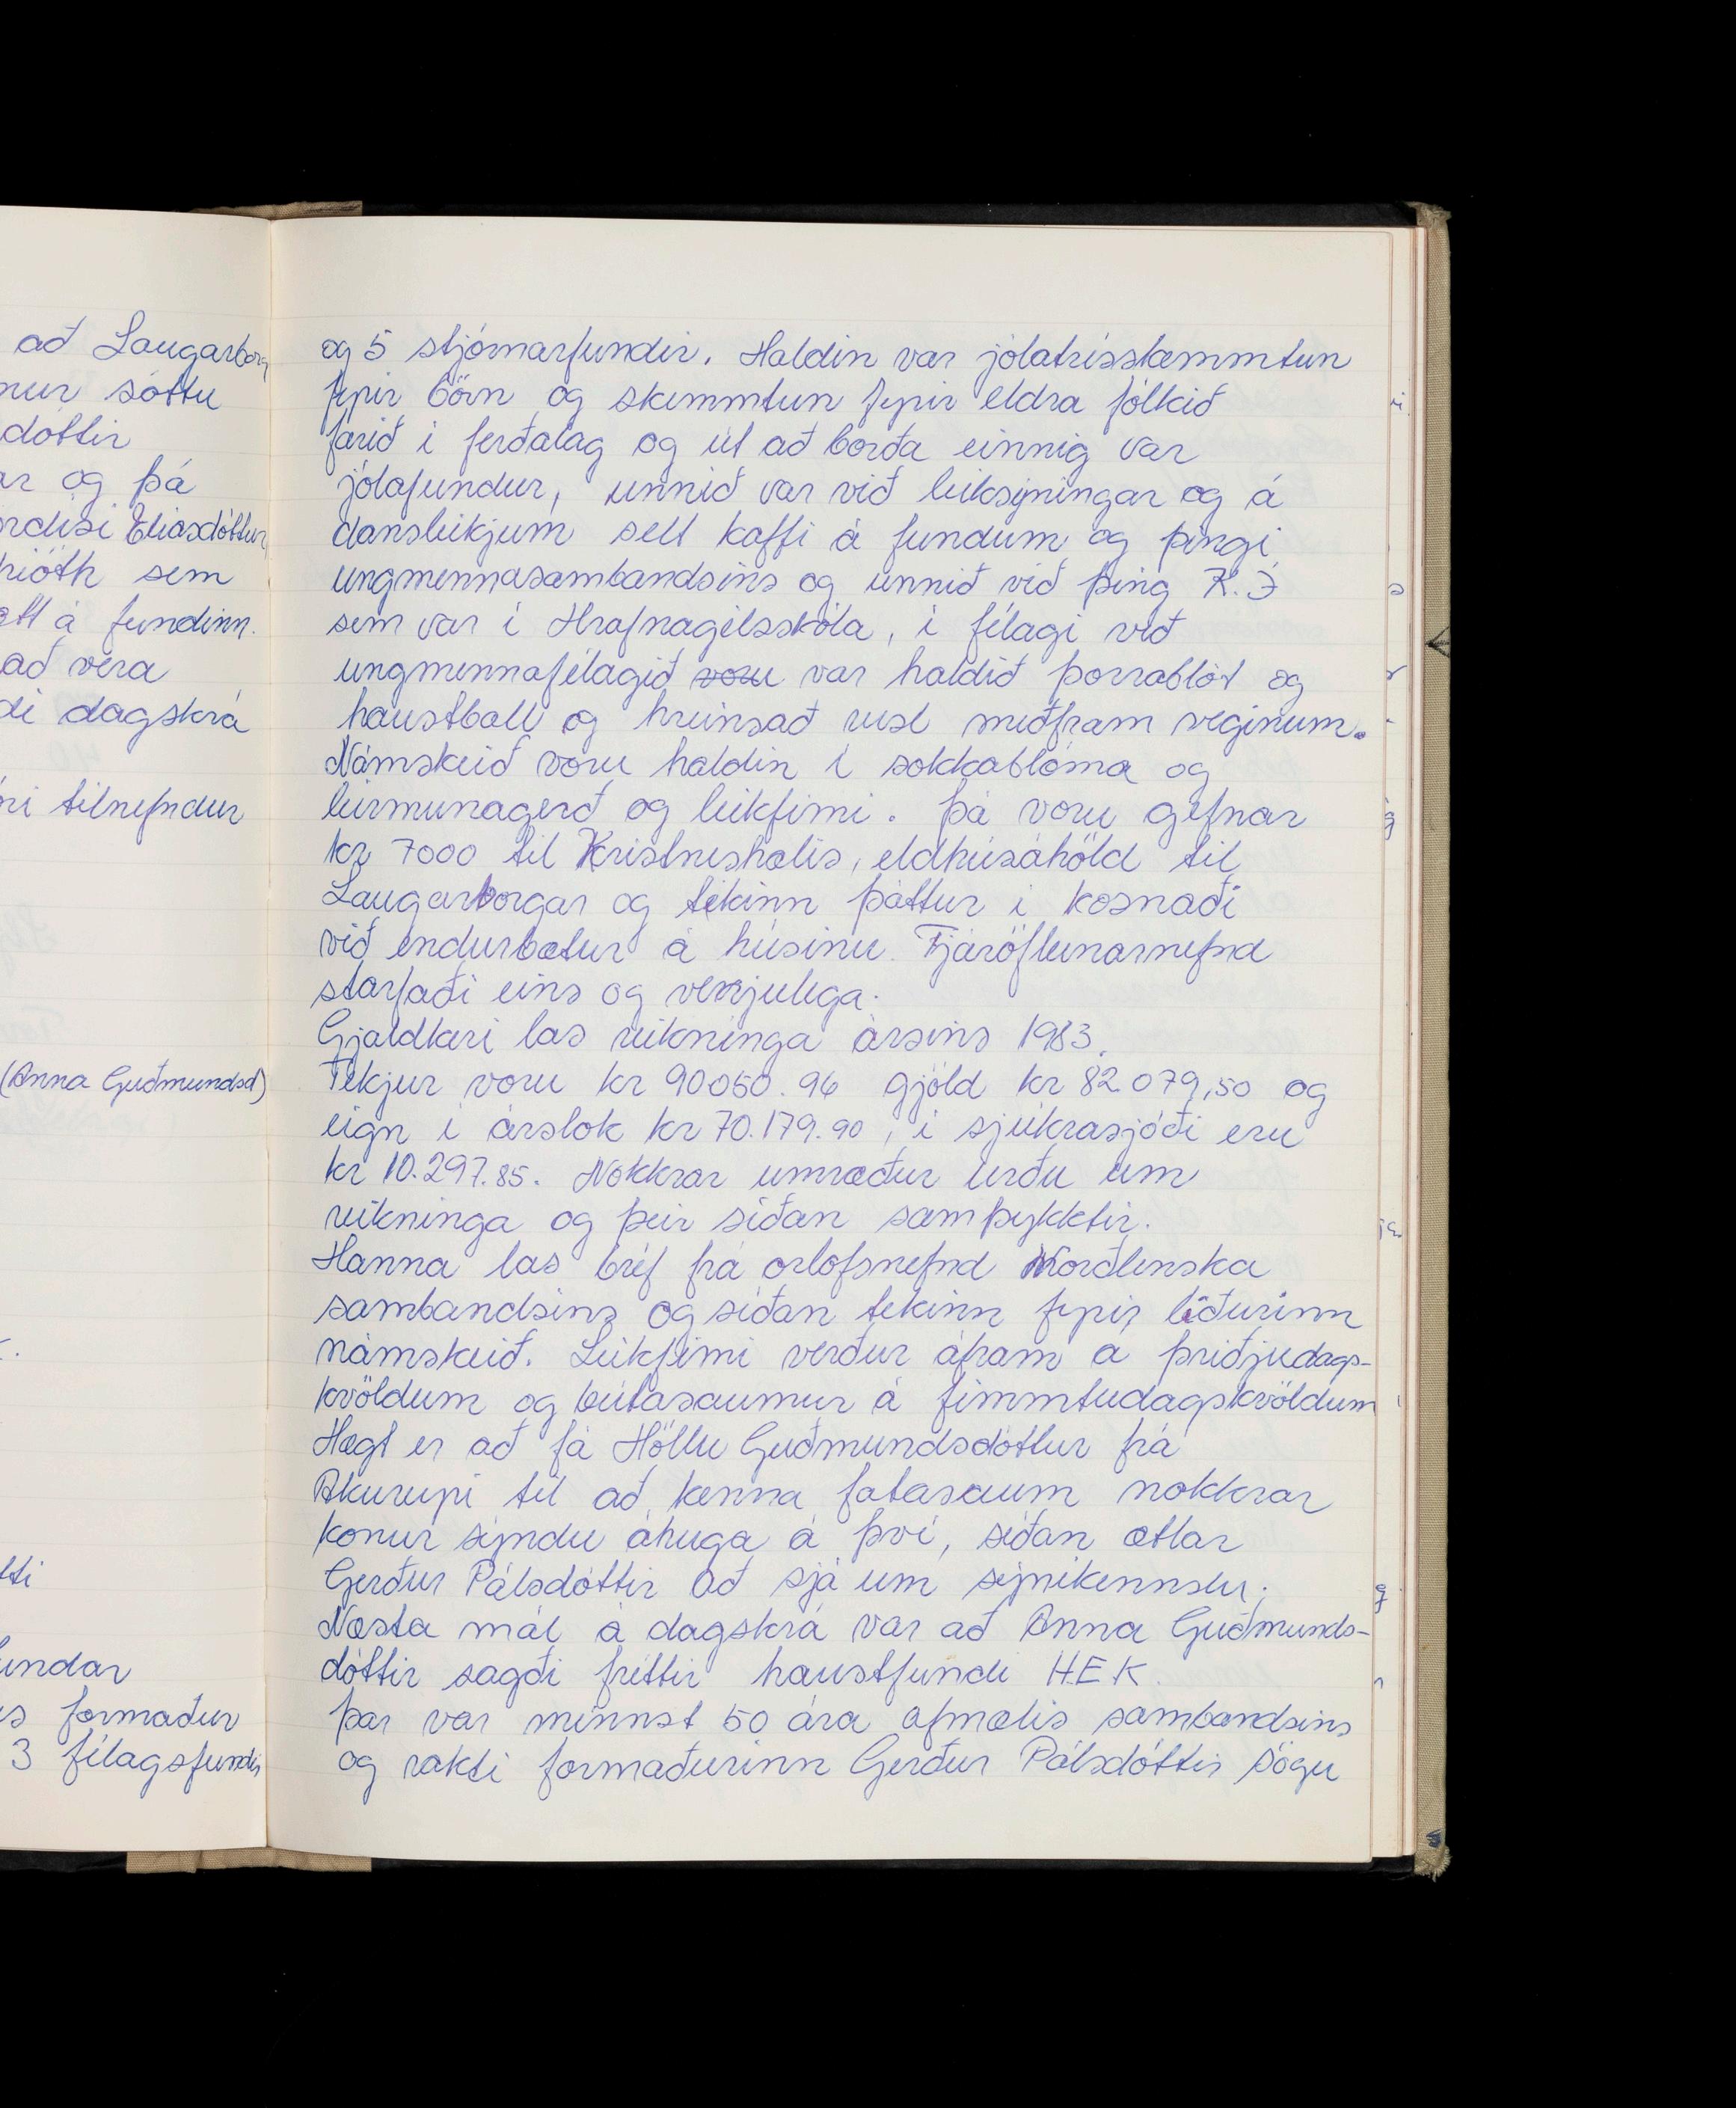 að Laugarborg
sóttu
dóttir
og þá
Elíasdóttur
sem
á fundinn.
að vera
dagskrá
tilnefndur
(Anna Guðmundsd)
formaður
3 félagsfundir
og 5 stjórnarfundir. Haldin var jólatrésskemmtun
fyrir börn og skemmtun fyrir eldra fólkið
farið í ferðalag og út að borða einnig var
jólafundur, unnið var við leiksýningar og á
dansleikjum selt kaffi á fundum og þingi
ungmennasambandsins og unnið við þing K.Í
sem var í Hrafnagilsskóla, í félagi við
ungmennafélagið voru var haldið þorrablót og
haustball og hreinsað rusl meðfram veginum.
Námskeið voru haldin í sokkablóma og
leirmunagerð og leikfimi. Þá voru gefnar
kr 7000 til Kristneshælis, eldhúsáhöld til
Laugarborgar og tekinn þáttur í kosnaði
við endurbætur á húsinu. Fjáröflunarnefnd
starfaði eins og venjulega.
Gjaldkeri las reikninga ársins 1983.
Tekjur voru kr 90050.96 gjöld kr 82.079,50 og
eign í árslok kr 70.179.90, í sjúkrasjóði eru
kr 10.297.85. Nokkrar umræður urðu um
reikninga og þeir síðan samþykktir.
Hanna las bréf frá orlofsnefnd Norðlenska
sambandsins og síðan tekinn fyrir liðurinn
námskeið. Leikfimi verður áfram á þriðjudags-
kvöldum og bútasaumur á fimmtudagskvöldum
Hægt er að fá Höllu Guðmundsdóttur frá
Akureyri til að kenna fatasaum nokkrar
konur sýndu áhuga á því, síðan ætlar
Gerður Pálsdóttir að sjá um sýnikennslu.
Næsta mál á dagskrá var að Anna Guðmunds-
dóttir sagði fréttir haustfundi H.E.K.
Þar var minnst 50 ára afmælis sambandsins
og rakti formaðurinn Gerður Pálsdóttir sögu